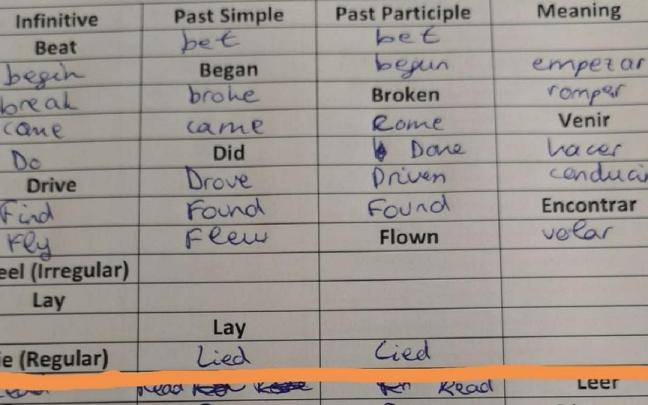 Infinitive Past Simple Past Participle Meaning
Beat bet bet
begin Began begun empezar
break broke Broken romper
came came Come Venir
Do Did Done hacer
Drive Drove Driven conducir
Find Found Found Encontrar
Fly Flew Flown volar
eel (Irregular)
Lay
Lay
ie (Regular) Lied Lied
Read Read Leer